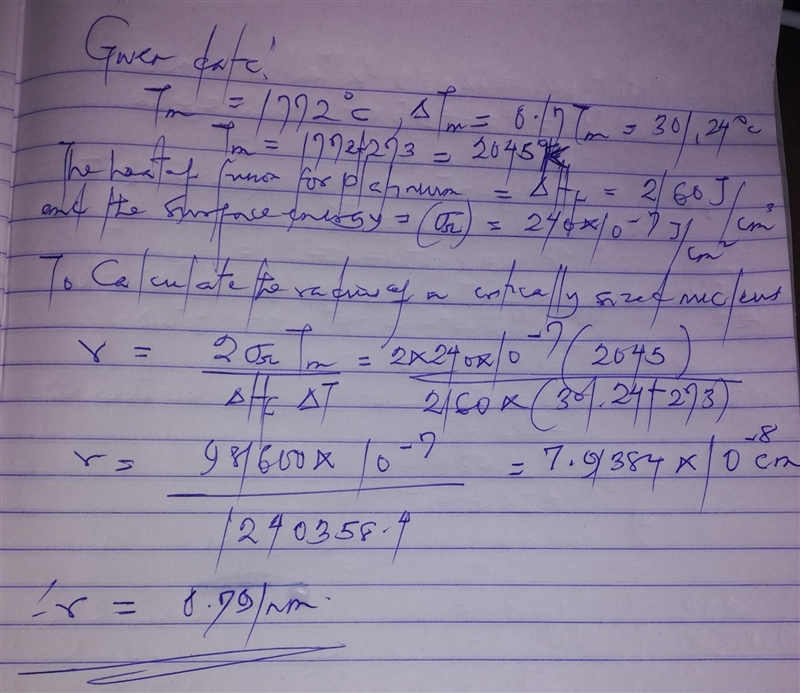 Given data:
Tm = 1772°c, ΔTm = 0.17Tm = 301.24°c
Tm = 1772+273 = 2045°K
The heat of fusion for platinum = ΔHf = 2160 J/cm³
and the surface energy = (σsl) = 240×10⁻⁷ J/cm²
To Calculate the radius of a critically sized nucleus
r = 2σsl Tm / ΔHf ΔT = 2×240×10⁻⁷(2045) / 2160×(301.24+273)
r = 981600×10⁻⁷ / 1240358.4 = 7.91384×10⁻⁸cm
∴ r = 0.791nm.